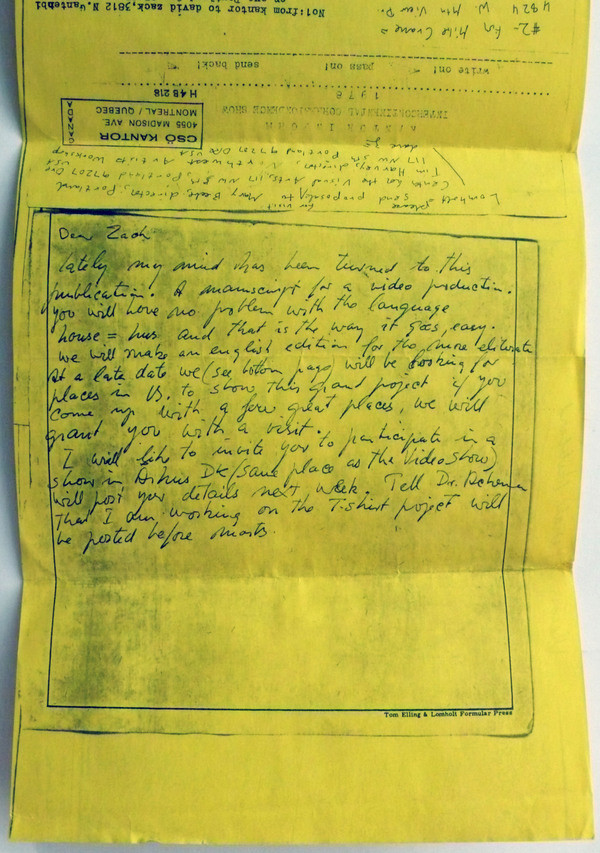 No1:from kantor to david zack,3812 N.
#2- For Mike Crane
4824 W. Mtn View Dr.
write on! pass on! send back!
1976
INTERCONTINENTAL CORRESPONDENCE SHOW
CSÖ KANTOR
4055 MADISON AVE.
MONTREAL / QUEBEC
CANADA
H4B 218
Lomholt
please send proposal for visit to Mary Beebe, director, Portland
Center for the Visual Arts, 117 NW 5th, Portland 97207 Ore USA
Tim Harvey, director, Northwest Artists Workshop
117 NW 5th Portland 97207 Ore USA
Dear Zack
lately my mind has been turned to this
publication. A manuscript for a video production.
you will have no problem with the language
house = hus and that is the way it goes, easy.
we will make an english edition for the more eliterate
At a late date we (see bottom page) will be looking for
places in US. to show this grand project if you
come up with a few great places, we will
grant you with a visit.
I will like to invite you to participate in a
show in Århus DK (same place as the Video show)
will post your details next week. Tell Dr.
that I am working on the T-shirt project will
be posted before marts.
Tom Elling & Lomholt Formular Press